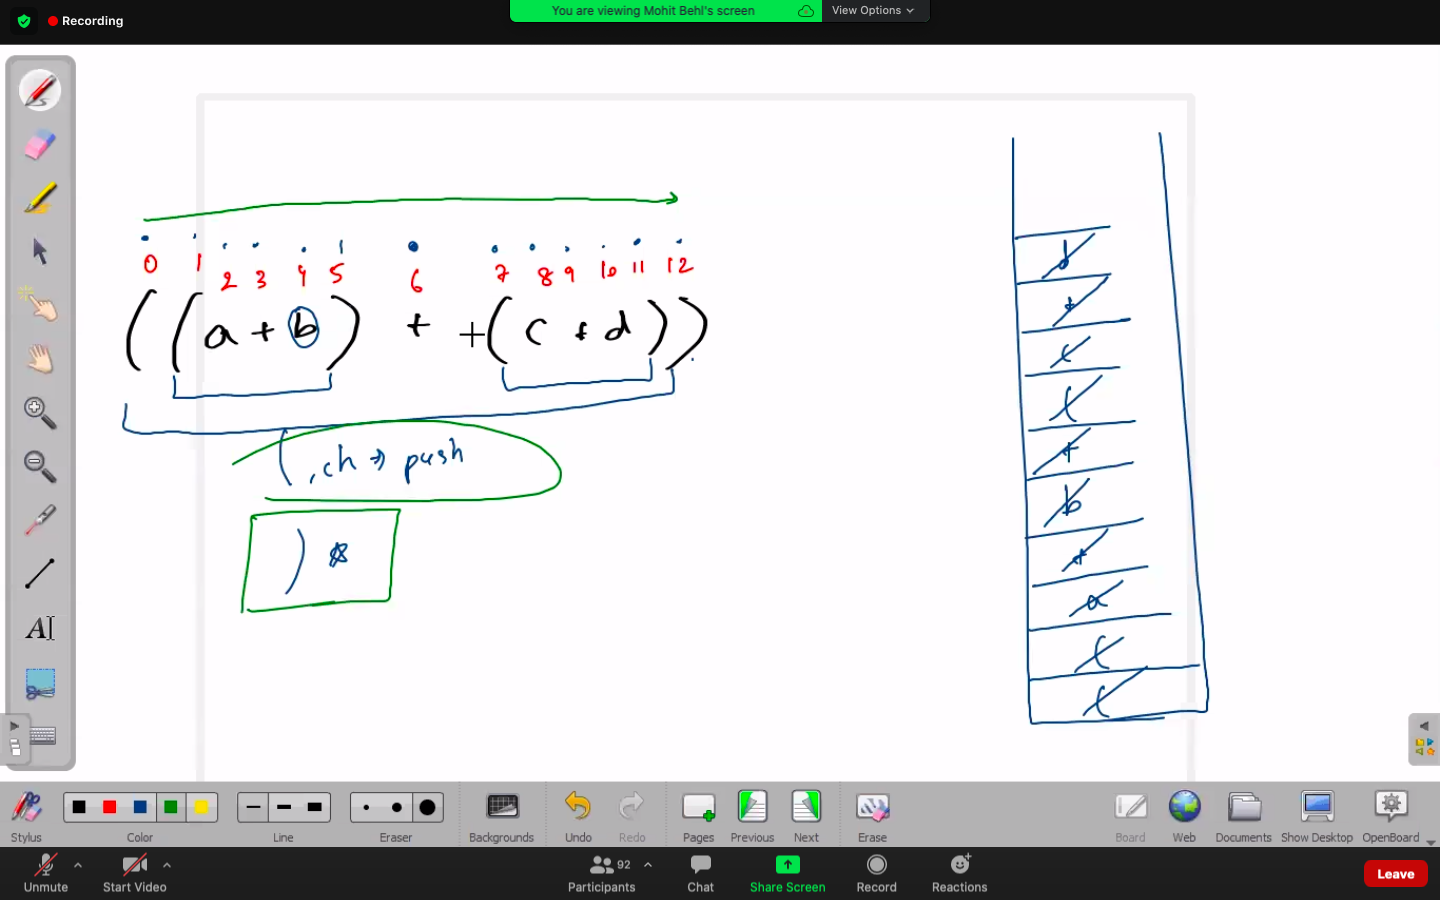 Recording
You are viewing Mohit Behl's screen
View Options
0 1 2 3 4 5 6 7 8 9 10 11 12
((a + b) + +(c + d))
( , ch → push
)
d
+
c
(
+
b
+
a
(
(
Stylus
Color
Line
Eraser
Backgrounds
Undo
Redo
Pages
Previous
Next
Erase
Board
Web
Documents
Show Desktop
OpenBoard
Unmute
Start Video
Participants
92
Chat
Share Screen
Record
Reactions
Leave